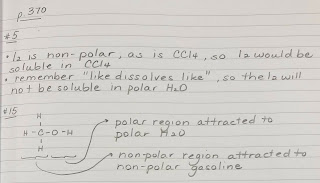 p. 370
#5
• I2 is non-polar, as is CCl4, so I2 would be
soluble in CCl4
• remember "like dissolves like", so the I2 will
not be soluble in polar H2O
#15
H
H-C-O-H
H
polar region attracted to
polar H2O
non-polar region attracted to
non-polar gasoline